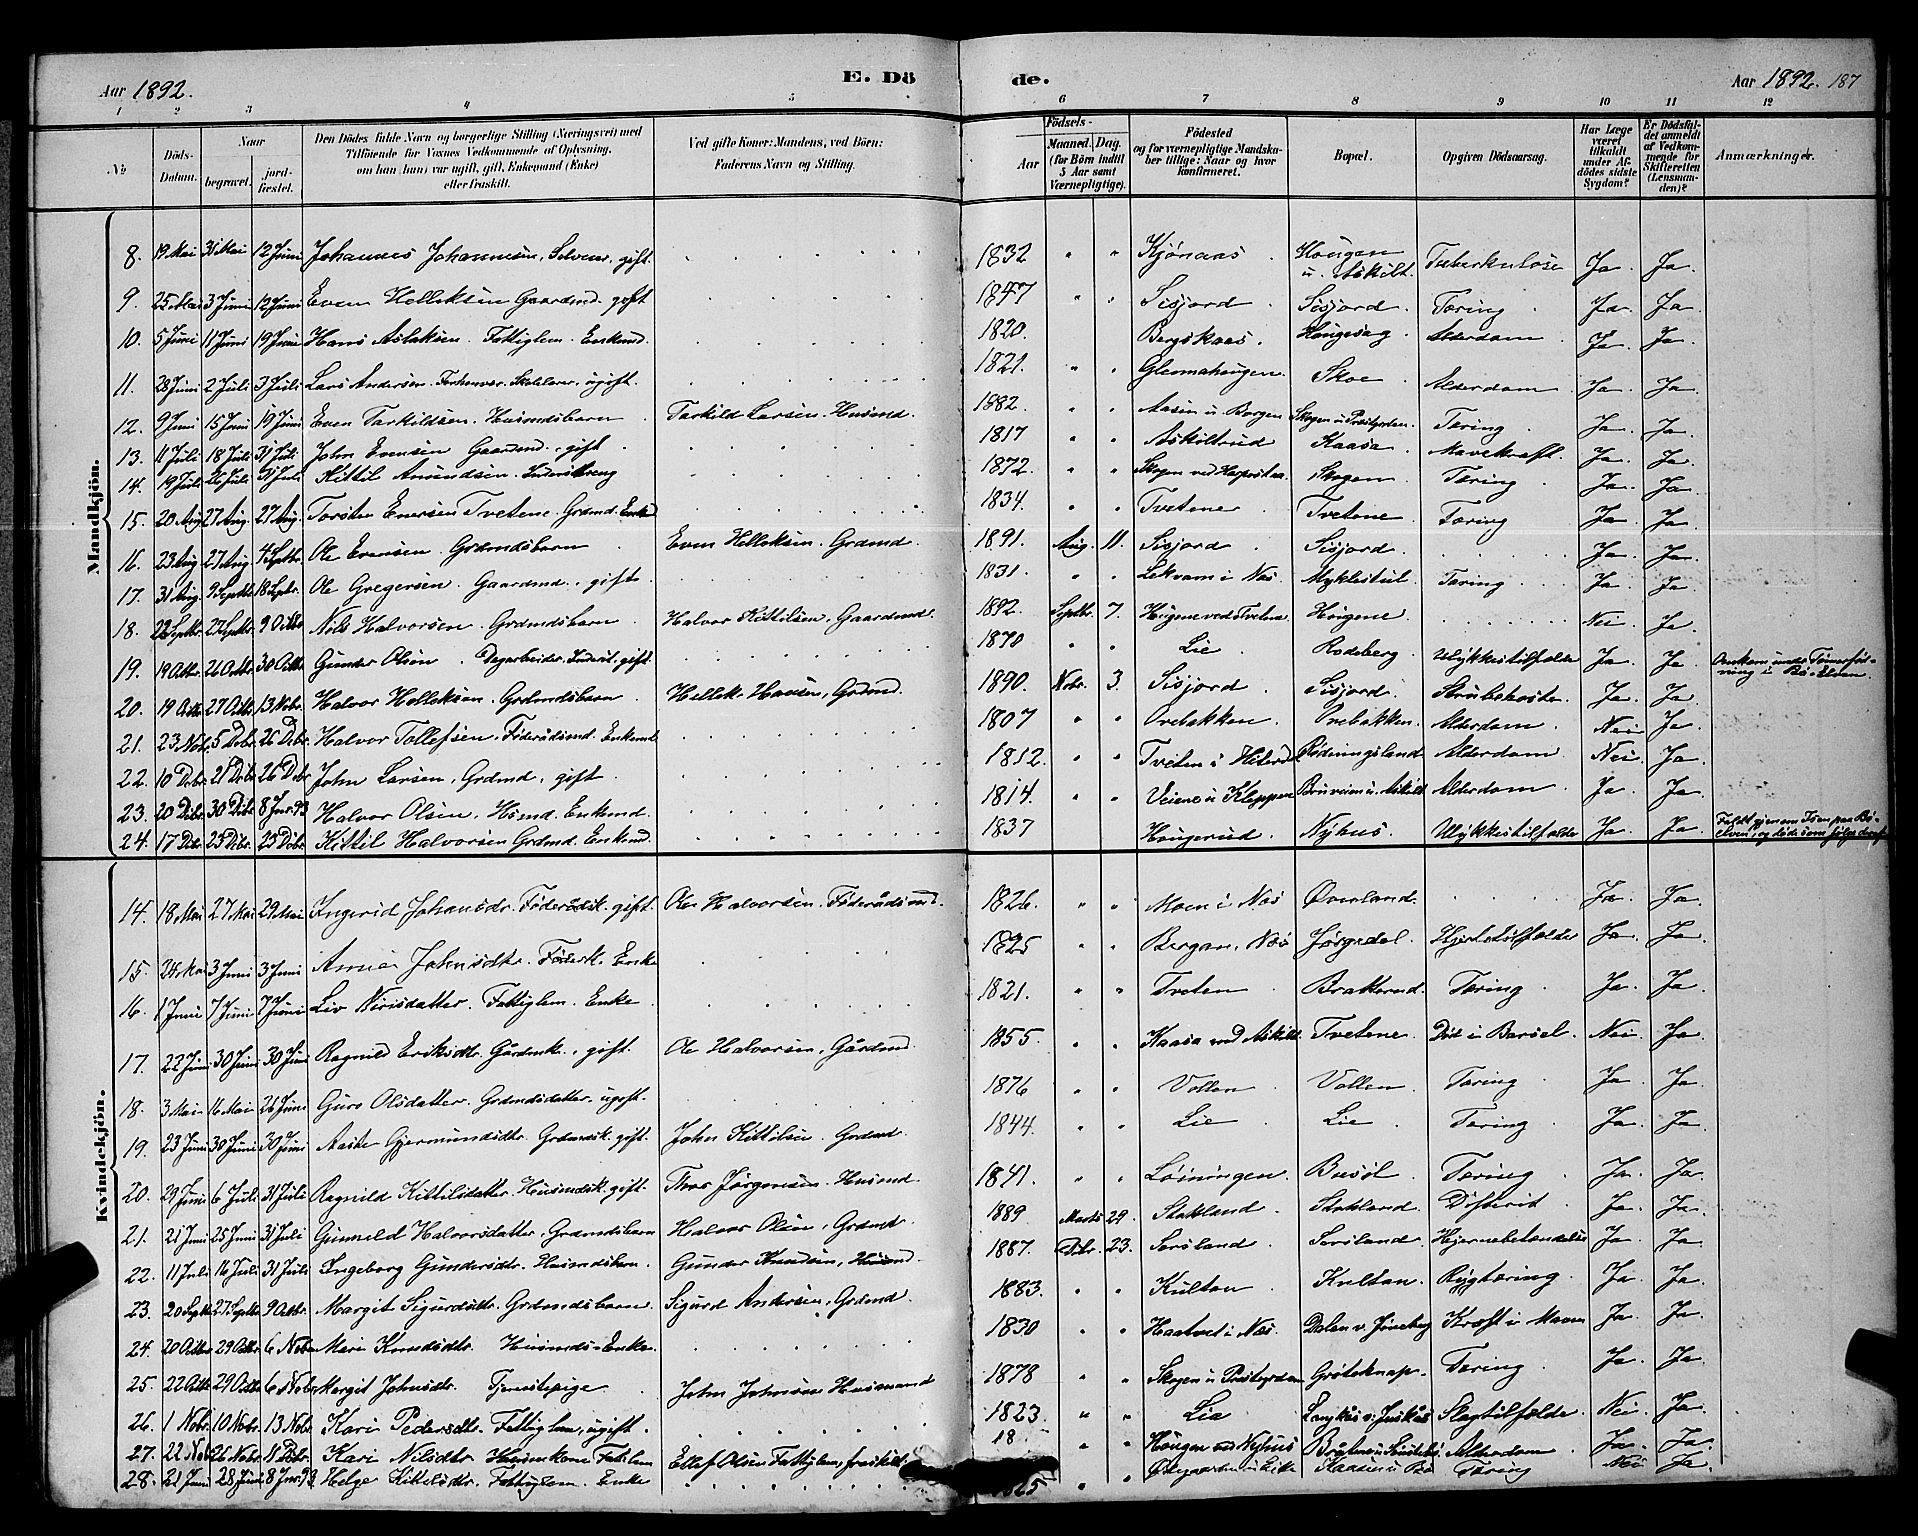 Aar 1892. E. Dö de. Aar 1892. 187
1 2 3 4 5 6 7 8 9 10 11 12
No Döds-Datum. Naar begravet. jordfæstet. Den Dödes fulde Navn og borgerlige Stilling (Næringsvei) med Tilföiende for Voxnes Vedkommende af Oplysning, om han (hun) var ugift, gift, Enkemand (Enke) eller fraskilt. Ved gifte Koner: Mandens, ved Börn: Faderens Navn og Stilling. Födsels- Aar Maaned. Dag. (for Börn indtil 5 Aar samt Værnepligtige). Födested og for værnepligtige Mandskaber tillige: Naar og hvor konfirmeret. Bopæl. Opgiven Dödsaarsag. Har Læge været tilkaldt under Afdödes sidste Sygdom? Er Dödsfaldet anmeldt af Vedkommende for Skifteretten (Lensmanden)? Anmærkninger.
Mandkjön.
8. 19 Mai 31 Mai 12 Juni Johannes Johannesen, Selveier, gift. 1832 " " Kjønaas Hougen u. Askilt. Tuberkulose Ja. Ja.
9. 25 Mai 3 Juni 12 Juni Even Helleksen Gaardmd. gift 1847 " " Sisjord Sisjord. Tæring Ja. Ja
10. 5 Juni 11 Juni 19 Juni Hans Aslaksen. Fattiglem. Enkemd. 1820. Bergskaas. Hougesag Alderdom Ja. Ja.
11. 28 Juni 2 Juli 3 Juli Lars Andersen. Forhenvær. Skolelærer, ugift. 1821. " " Glenmahougen. Skoe Alderdom Ja. Ja
12. 9 Juni 15 Juni 19 Juni Even Tarkildsen. Husmdsbarn Tarkild Larsen. Husmd. 1882. " " Aasen u Borgen Skogen u Præstgrden. Tæring Ja. Ja.
13. 11 Juli 18 Juli 31 Juli John Evensen Gaardmd. gift 1817 " " Askiltrud Kaasa Mavekræft. Ja. Ja.
14. 19 Juli 26 Juli 31 Juli Kittil Amundsen. Inderstdreng 1872. " " Skogen ved Skogen Tæring Ja. Ja.
15. 20 Aug 27 Aug. 27 Aug. Torsten Evensen Tvetene. Grdmd. Enkmd 1834. " " Tvetene Tvetene Tæring Ja. Ja.
16. 23 Aug 27 Aug 4 Septbr. Ole Evensen. Grdmdsbarn Even Helleksen. Grdmd. 1891. Aug. 11. Sisjord Sisjord. Ja. Ja.
17. 31 Aug. 9 Septbr 18 Septbr. Ole Gregersen. Gaardmd., gift 1831. " " Lekvam i Næs Myklestul Tæring Ja. Ja.
18. 22 Septbr. 27 Septbr. 9 Octbr Nils Halvorsen. Grdmdsbarn. Halvor Kittilsen, Gaardmd. 1892. Septbr. 7. Hougene ved Tvetene Hougene Nei. Ja.
19. 19 Octbr. 26 Octbr. 30 Octbr. Gunder Olsen. Dagarbeider. Inderst. gift. 1870 " " Lie Rodeberg Ulykkestilfælde Ja. Ja Omkom under Tømmerflødning i Bø-Elven
20. 19 Octbr. 27 Octbr. 13 Novbr. Halvor Helleksen. Grdmdsbarn Hellek Hansen, Grdmd. 1890. Novbr. 3. Sisjord Sisjord. Strubehoste Ja. Ja.
21. 23 Novbr. 5 Debr. 26 Debr. Halvor Tollefsen. Føderådsmd. Enkemd 1807 " " Ovebakken. Ovebakken. Alderdom. Nei Ja.
22. 10 Debr. 21 Debr. 26 Debr John Larsen, Grdmd, gift 1812. " " Tveten i Hiterdal Rødningsland Alderdom Nei. Ja.
23. 20 Debr. 30 Debr. 8 Jnr. 93 Halvor Olsen, Hsmd. Enkemd. 1814. " " Veiene u Kleppen Bruveien u. Askilt Alderdom Ja. Ja.
24. 17 Debr 25 Debr. 25 Debr. Kittil Halvorsen Grdmd. Enkemd. 1837 Hougerud Nyhus. Ulykkestilfælde Ja. Ja. Faldt gjenom Isen paa Bø-Elven, og døde som følge deraf
Kvindekjön.
14. 18 Mai 27 Mai 29 Mai Ingerid Johansdr. Føderådsk. gift. Ole Halvorsen. Føderådsmd. 1826. " " Moen i Næs Øverland Ja. Ja.
15. 24 Mai 3 Juni 3 Juni Anne Johnsdtr. Føderk. Enke 1825 " " Bergan, Næs Jørgedal. Hjertetilfælde Ja. Ja.
16. 1 Juni 7 Juni 7 Juni Liv Nirisdatter. Fattiglem. Enke 1821. " " Tveten Bratterud. Tæring Ja. Ja.
17. 22 Juni 30 Juni 30 Juni Ragnild Eriksdtr. Gårdmk., gift. Ole Halvorsen, Gårdmd. 1855. " " Kaasa ved Askilt. Tvetene Død i Barsel. Nei Ja.
18. 3 Mai 16 Mai 26 Juni Guro Olsdatter. Grdmdsdatter. ugift. 1876 " " Vollen Vollen Tæring Ja. Ja.
19. 23 Juni 30 Juni 30 Juni Aaste Gjermundsdtr. Grdmdsk. gift. John Kittilsen. Grdmd. 1844. " " Lie Lie Tæring Ja. Ja.
20. 29 Juni 6 Juli 31 Juli Ragnild Kittilsdatter. Husmdsk. gift. Thor Jørgensen. Husmd. 1841. " " Løiningen Busøl Tæring Ja. Ja.
21. 21 Juni 25 Juni 31 Juli Gunnild Halvorsdatter, Grdmdsbarn Halvor Olsen, Grdmd. 1889 Marts 29. Stokland Stokland Difterit Ja. Ja.
22. 11 Juli 16 Juli 31 Juli Ingeborg Gundersdtr. Husmdsbarn. Gunder Knudsen, Husmd. 1887. Debr. 23. Sorsland Sorsland. Hjernebetændelse Ja. Ja
23. 20 Septbr 27 Septbr 9 Octbr. Margit Sigurdsdtr. Grdmdsbarn. Sigurd Andersen, Grdmd. 1883. " " Kultan Kultan. Rygtæring. Ja. Ja.
24. 20 Octbr. 29 Octbr. 6 Novbr. Mari Knudsdtr. Husmds-Enke. 1830 " " Haatvet i Næs. Dalen v. Kræft i Maven Ja. Ja.
25. 22 Octbr. 29 Octbr. 6 Novbr. Margit Johnsdtr. Tjenestepige John Johnsen Husmand 1878 " " Skogen u Præstgrden Grøteknap. Tæring Ja. Ja.
26. 1 Novbr. 10 Novbr. 13 Novbr. Kari Pedersdtr. Fattiglem, ugift. 1823. " " Lia Slagtilfælde. Nei. Ja.
27. 22 Novbr. 26 Novbr. 11 Debr. Kari Nilsdtr. Huusmkone Fattiglem Ellef Olsen Fattiglem, fraskilt. 18 " " Hougen ved Nyhus Alderdom Ja. Ja.
28. 21 Juni 28 Juni 8 Jnr. 93 Helge Kittilsdtr. Fattiglem. Enke 1825 " " Kaasen u Bø Tæring Nei Ja.